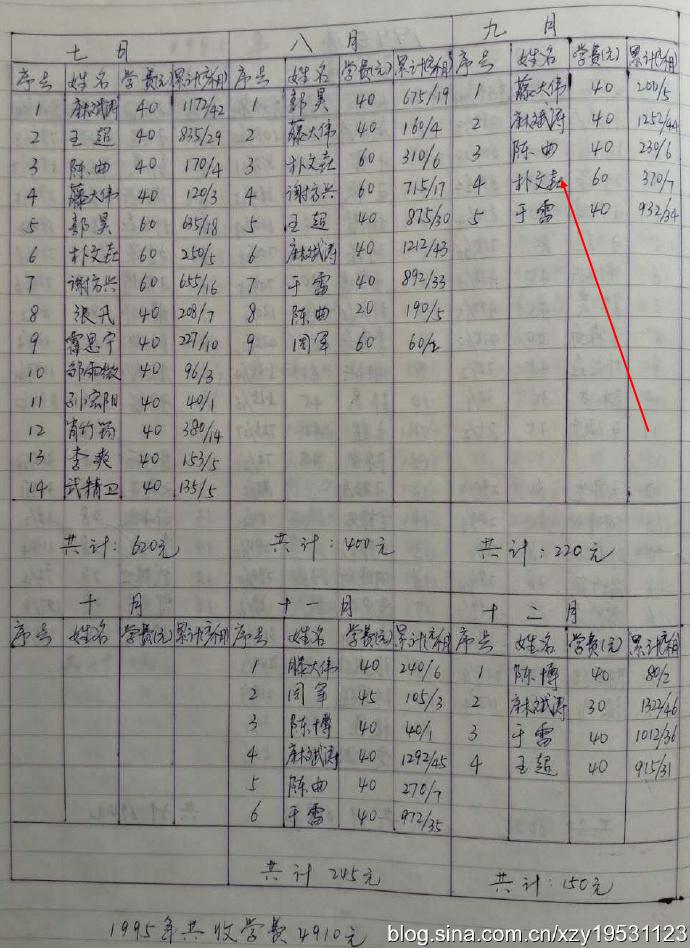 七月 八月 九月
序号 姓名 学费(元) 累计(元/月) 序号 姓名 学费(元) 累计(元/月) 序号 姓名 学费(元) 累计(元/月)
1 麻斌涛 40 1172/42 1 郭昊 40 675/19 1 藤大伟 40 200/5
2 王超 40 835/29 2 藤大伟 40 160/4 2 麻斌涛 40 1252/44
3 陈曲 40 170/4 3 朴文垚 60 310/6 3 陈曲 40 230/6
4 藤大伟 40 120/3 4 谢方兴 60 715/17 4 朴文垚 60 370/7
5 郭昊 60 635/18 5 王超 40 875/30 5 于雷 40 932/34
6 朴文垚 60 250/5 6 麻斌涛 40 1212/43
7 谢方兴 60 655/16 7 于雷 40 892/33
8 张凡 40 208/7 8 陈曲 20 190/5
9 雷思宁 40 227/10 9 周军 60 60/2
10 邹雨 40 96/3
11 孙宏阳 40 40/1
12 肖竹筠 40 380/14
13 李爽 40 153/5
14 武精卫 40 135/5
共计:620元 共计:400元 共计:220元
十月 十一月 十二月
序号 姓名 学费(元) 累计(元/月) 序号 姓名 学费(元) 累计(元/月) 序号 姓名 学费(元) 累计(元/月)
1 藤大伟 40 240/6 1 陈博 40 80/2
2 周军 45 105/3 2 麻斌涛 30 1322/46
3 陈博 40 40/1 3 于雷 40 1012/36
4 麻斌涛 40 1292/45 4 王超 40 915/31
5 陈曲 40 270/7
6 于雷 40 972/35
共计 245元 共计:150元
1995年共收学费4910元
blog.sina.com.cn/xzy19531123